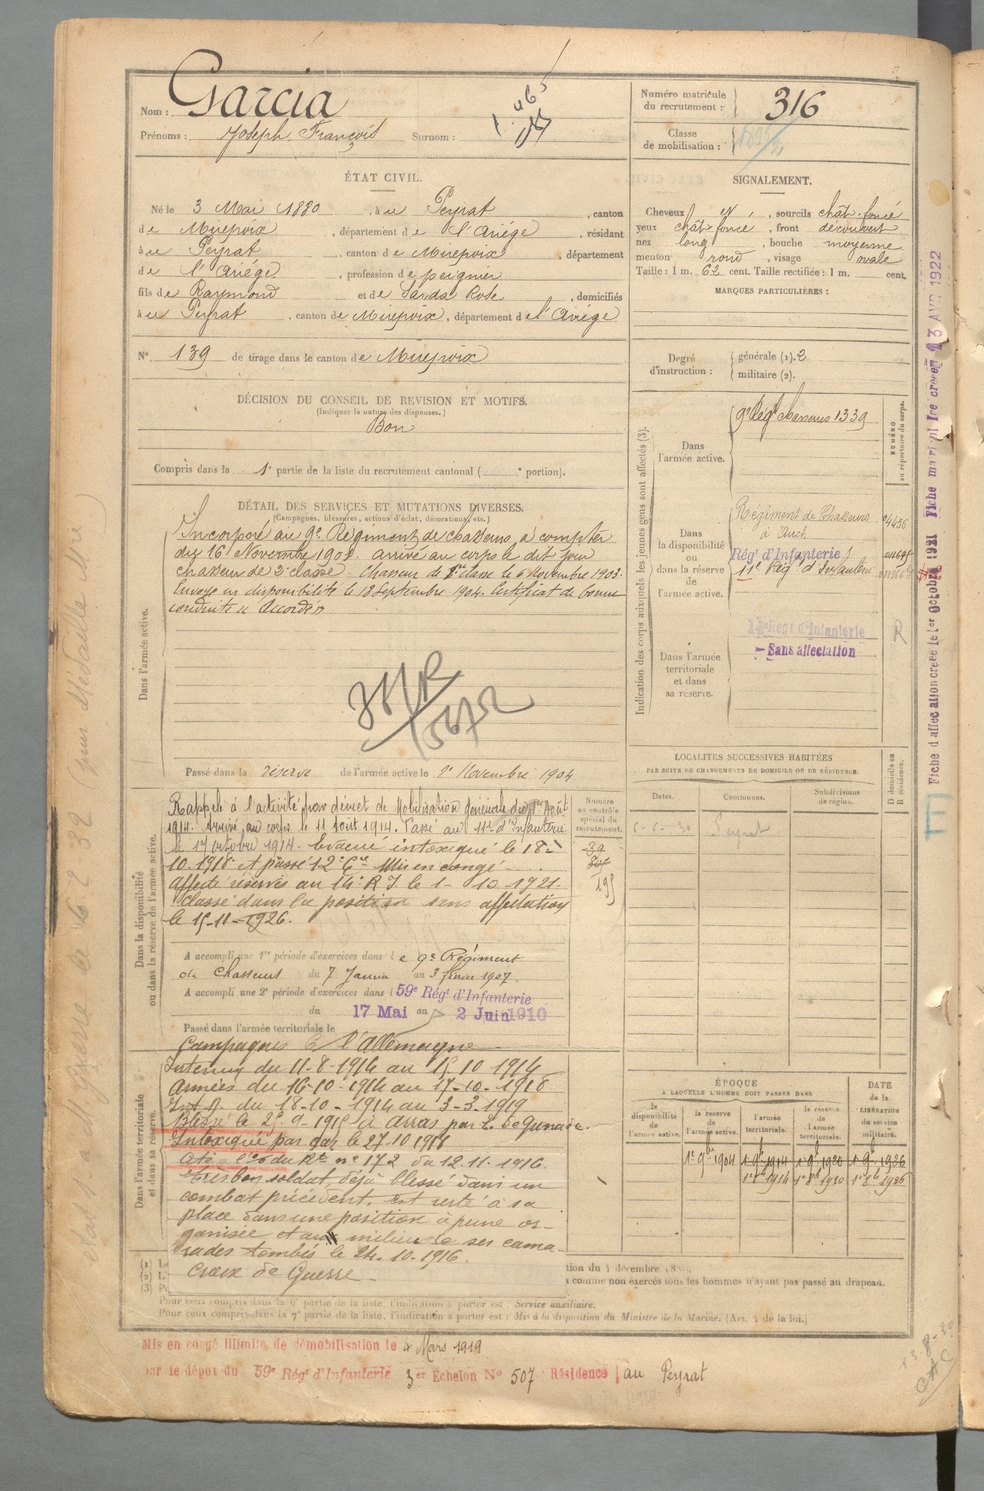 Nom : Garcia
Prénoms : Joseph François Surnom :
1.465
Numéro matricule du recrutement : 316
Classe de mobilisation :
ÉTAT CIVIL.
Né le 3 Mai 1880, à u Peyrat, canton
de Mirepoix, département de l'Ariége, résidant
à u Peyrat, canton de Mirepoix, département
de l'Ariége, profession de peignier
fils de Raymond et de Sarda Rose, domiciliés
à u Peyrat, canton de Mirepoix, département de l'Ariége
N° 139 de tirage dans le canton de Mirepoix
SIGNALEMENT.
Cheveux et, sourcils chât. foncé
yeux chât foncé, front découvert
nez long, bouche moyenne
menton rond, visage ovale
Taille : 1 m. 62 cent. Taille rectifiée : 1 m. cent.
MARQUES PARTICULIÈRES :
Degré d'instruction : générale (1). 2
militaire (2).
DÉCISION DU CONSEIL DE REVISION ET MOTIFS.
(Indiquer la nature des dispenses.)
Bon
Compris dans la 1e partie de la liste du recrutement cantonal ( e portion).
DÉTAIL DES SERVICES ET MUTATIONS DIVERSES.
(Campagnes, blessures, actions d'éclat, décorations, etc.)
Dans l'armée active.
Incorporé au 9e Régiment de chasseurs, à compter
du 16 Novembre 1901. arrivé au corps le dit jour
chasseur de 2e classe. Chasseur de 1re classe le 6 Novembre 1903.
Envoyé en disponibilité le 18 Septembre 1904. Certificat de bonne
conduite "Accordé"
Passé dans la réserve de l'armée active le 1er Novembre 1904
Indication des corps auxquels les jeunes gens sont affectés (3).
NUMÉRO au répertoire du corps.
Dans l'armée active.
9e Régt Chasseurs 1339
Dans la disponibilité ou dans la réserve de l'armée active.
Régiment de Chasseurs
à Auch
Rég' d'Infanterie
11e Rég' d'Infanterie
Dans l'armée territoriale et dans sa réserve.
Régt d'Infanterie
Sans affectation
R
Fiche d'affectation créée le 1er Octobre 1921 Fiche matricule créée le 13 AVR 1922
LOCALITÉS SUCCESSIVES HABITÉES
PAR SUITE DE CHANGEMENTS DE DOMICILE OU DE RÉSIDENCE.
Dates. Communes. Subdivisions de région. D domicile ou R résidence.
6-6-30 Peyrat
Dans la disponibilité ou dans la réserve de l'armée active.
Numéro au contrôle spécial du recrutement.
39
195
Rappelé à l'activité par décret de Mobilisation Générale du 1er Août
1914. Arrivé au corps le 11 Août 1914. Passé au 11e d'Infanterie
le 17 octobre 1914. Evacué intoxiqué le 18-
10-1918 et passé 12e Cie Mis en congé
Affecté réserves au 14e R I le 1-10-1921.
Classé dans la position sans affectation
le 15-11-1926.
A accompli une 1re période d'exercices dans le 9e Régiment
de Chasseurs du 7 Janvier au 3 février 1907.
A accompli une 2e période d'exercices dans l 59e Rég' d'Infanterie
du 17 Mai au 2 Juin 1910
Passé dans l'armée territoriale le
Dans l'armée territoriale et dans sa réserve.
Campagnes Ct l'Allemagne
Intérieur du 11-8-1914 au 15 10 1914
Armées du 16-10-1914 au 17-10-1918
Int. du 18-10-1914 au 3-3-1919
Blessé le 25-9-1915 à Arras par é. de grenade.
Intoxiqué par gaz le 27.10 1918
Cité à l'o du Rt n° 172 du 12.11.1916.
très bon soldat, déjà blessé dans un
combat précédent, est resté à sa
place dans une position à peine or-
ganisée et au milieu de ses cama-
rades tombés le 24.10.1916.
Croix de Guerre
ÉPOQUE
A LAQUELLE L'HOMME DOIT PASSER DANS
la disponibilité de l'armée active. la réserve de l'armée active. l'armée territoriale. la réserve de l'armée territoriale.
DATE DE LA LIBÉRATION DU SERVICE militaire.
1er 9bre 1904 1er 9bre 1914 1er 9bre 1920 1er 9bre 1926
1er 8bre 1914
(1) Le
(2) L
(3) P
comme non exercés tous les hommes n'ayant pas passé au drapeau.
Pour ceux compris dans la partie de la liste, l'indication à porter est : Service auxiliaire.
Pour ceux compris dans la 7e partie de la liste, l'indication à porter est : Mis à la disposition du Ministre de la Marine. (Art. 4 de la loi.)
Mis en congé illimité de démobilisation le 4 Mars 1919
par le dépôt du 59e Rég' d'Infanterie 3er Échelon N° 507 Résidence au Peyrat